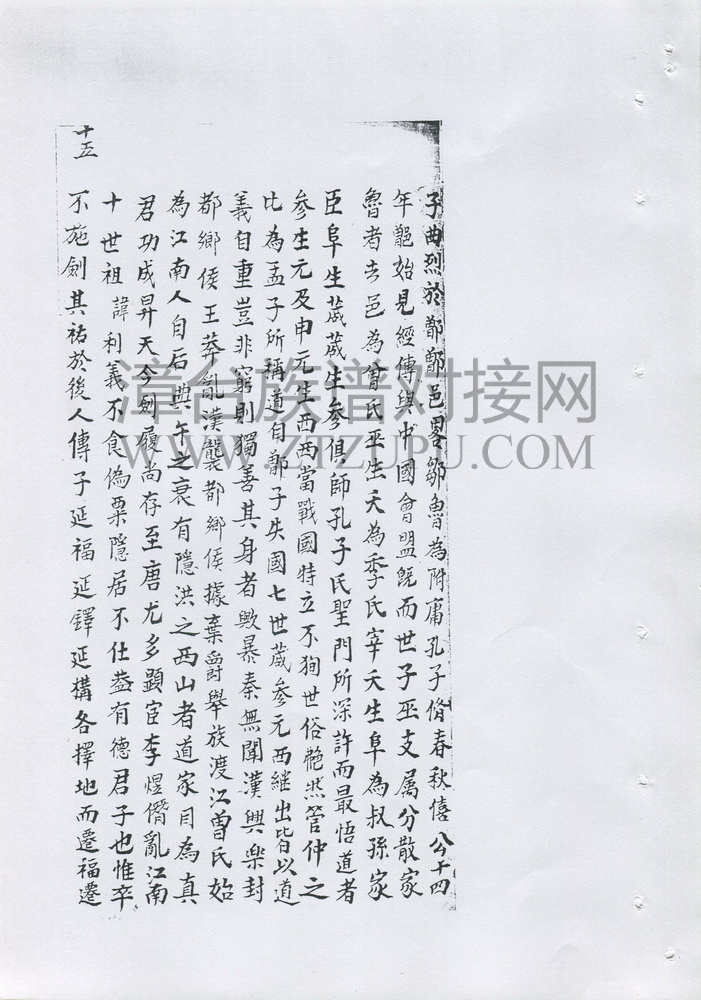 子曲烈於鄫鄫邑畧鄒魯為附庸孔子脩春秋僖公十四
年鄫始見經傳與中國會盟旣而世子巫支属分散家
魯者去邑為曾氏巫生夭為季氏宰夭生阜為叔孫家
臣阜生蒧蒧生参俱師孔子氏聖門所深許而最悟道者
参生元及申元生西西當戰國特立不狥世俗艴然管仲之
比為孟子所稱道自鄫子失國七世蒧参元西継出皆以道
義自重豈非窮則獨善其身者歟暴秦無聞漢興樂封
都鄉侯王莽亂漢襲都鄉侯據棄爵舉族渡江曾氏始
為江南人自后典午之衰有隱洪之西山者道家目為真
君功成昇天今劍履尚存至唐尤多顯宦李煜僭亂江南
十世祖諱利義不食偽粟隱居不仕葢有德君子也惟卒
不施劍其祐於後人傳子延福延鐸延構各擇地而遷福遷
十五
漳台族谱对接网
WWW.ZTZUPU.COM